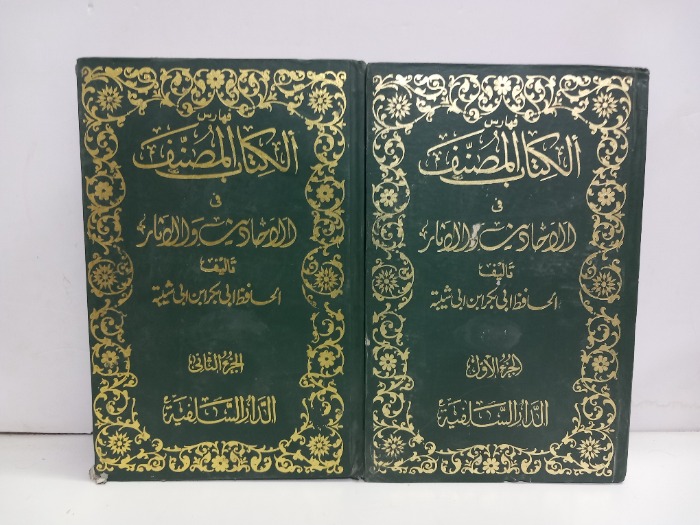 فهارس
الكتاب المصنف
في
الأحاديث والآثار
تأليف
الحافظ ابي بكر ابن ابي شيبة
الجزء الأول
الدار السلفية
فهارس
الكتاب المصنف
في
الأحاديث والآثار
تأليف
الحافظ ابي بكر ابن ابي شيبة
الجزء الثاني
الدار السلفية